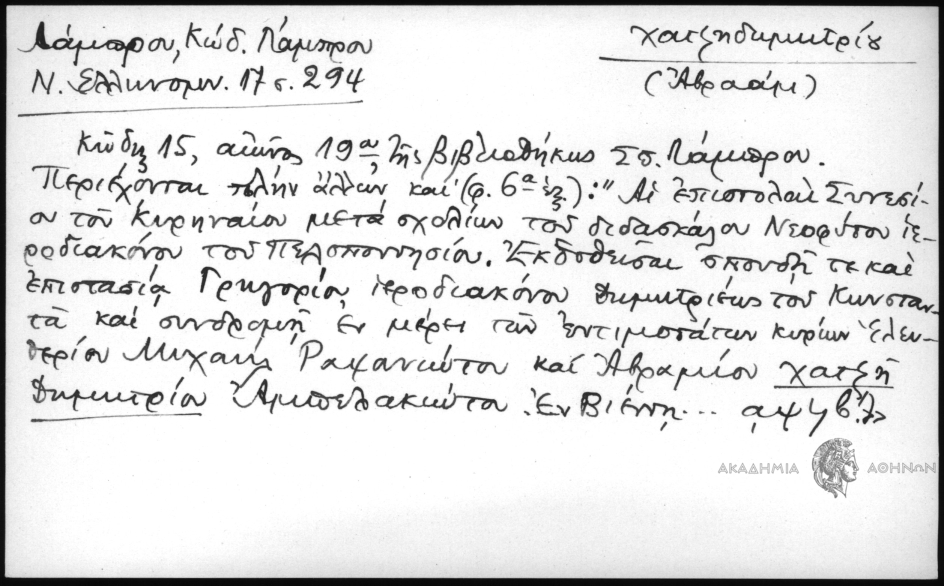 Λάμπρου, Κώδ. Λάμπρου
Ν. Ελληνομν. 17 σ. 294
Χατζηδημητρίου
(Ἀβραάμ)
Κῶδιξ 15, αἰῶνος 19ου τῆς βιβλιοθήκης Σπ. Λάμπρου.
Περιέχονται πλὴν ἄλλων καὶ (φ. 6α ἑξ.): "Αἱ ἐπιστολαὶ Συνεσί-
ου τοῦ Κυρηναίου μετὰ σχολίων τοῦ διδασκάλου Νεοφύτου ἱε-
ροδιακόνου τοῦ Πελοποννησίου. Ἐκδοθεῖσαι σπουδῇ τε καὶ
ἐπιστασίᾳ Γρηγορίου ἱεροδιακόνου Δημητριέως τοῦ Κωνσταν-
τᾶ καὶ συνδρομῇ ἐν μέρει τῶν ἐντιμοτάτων κυρίων Ἐλευ-
θερίου Μιχαὴλ Ραψανιώτου καὶ Ἀβραμίου Χατζῆ
Δημητρίου Ἀμπελακιώτου. Ἐν Βιέννῃ... αψϟβ."
ΑΚΑΔΗΜΙΑ ΑΘΗΝΩΝ